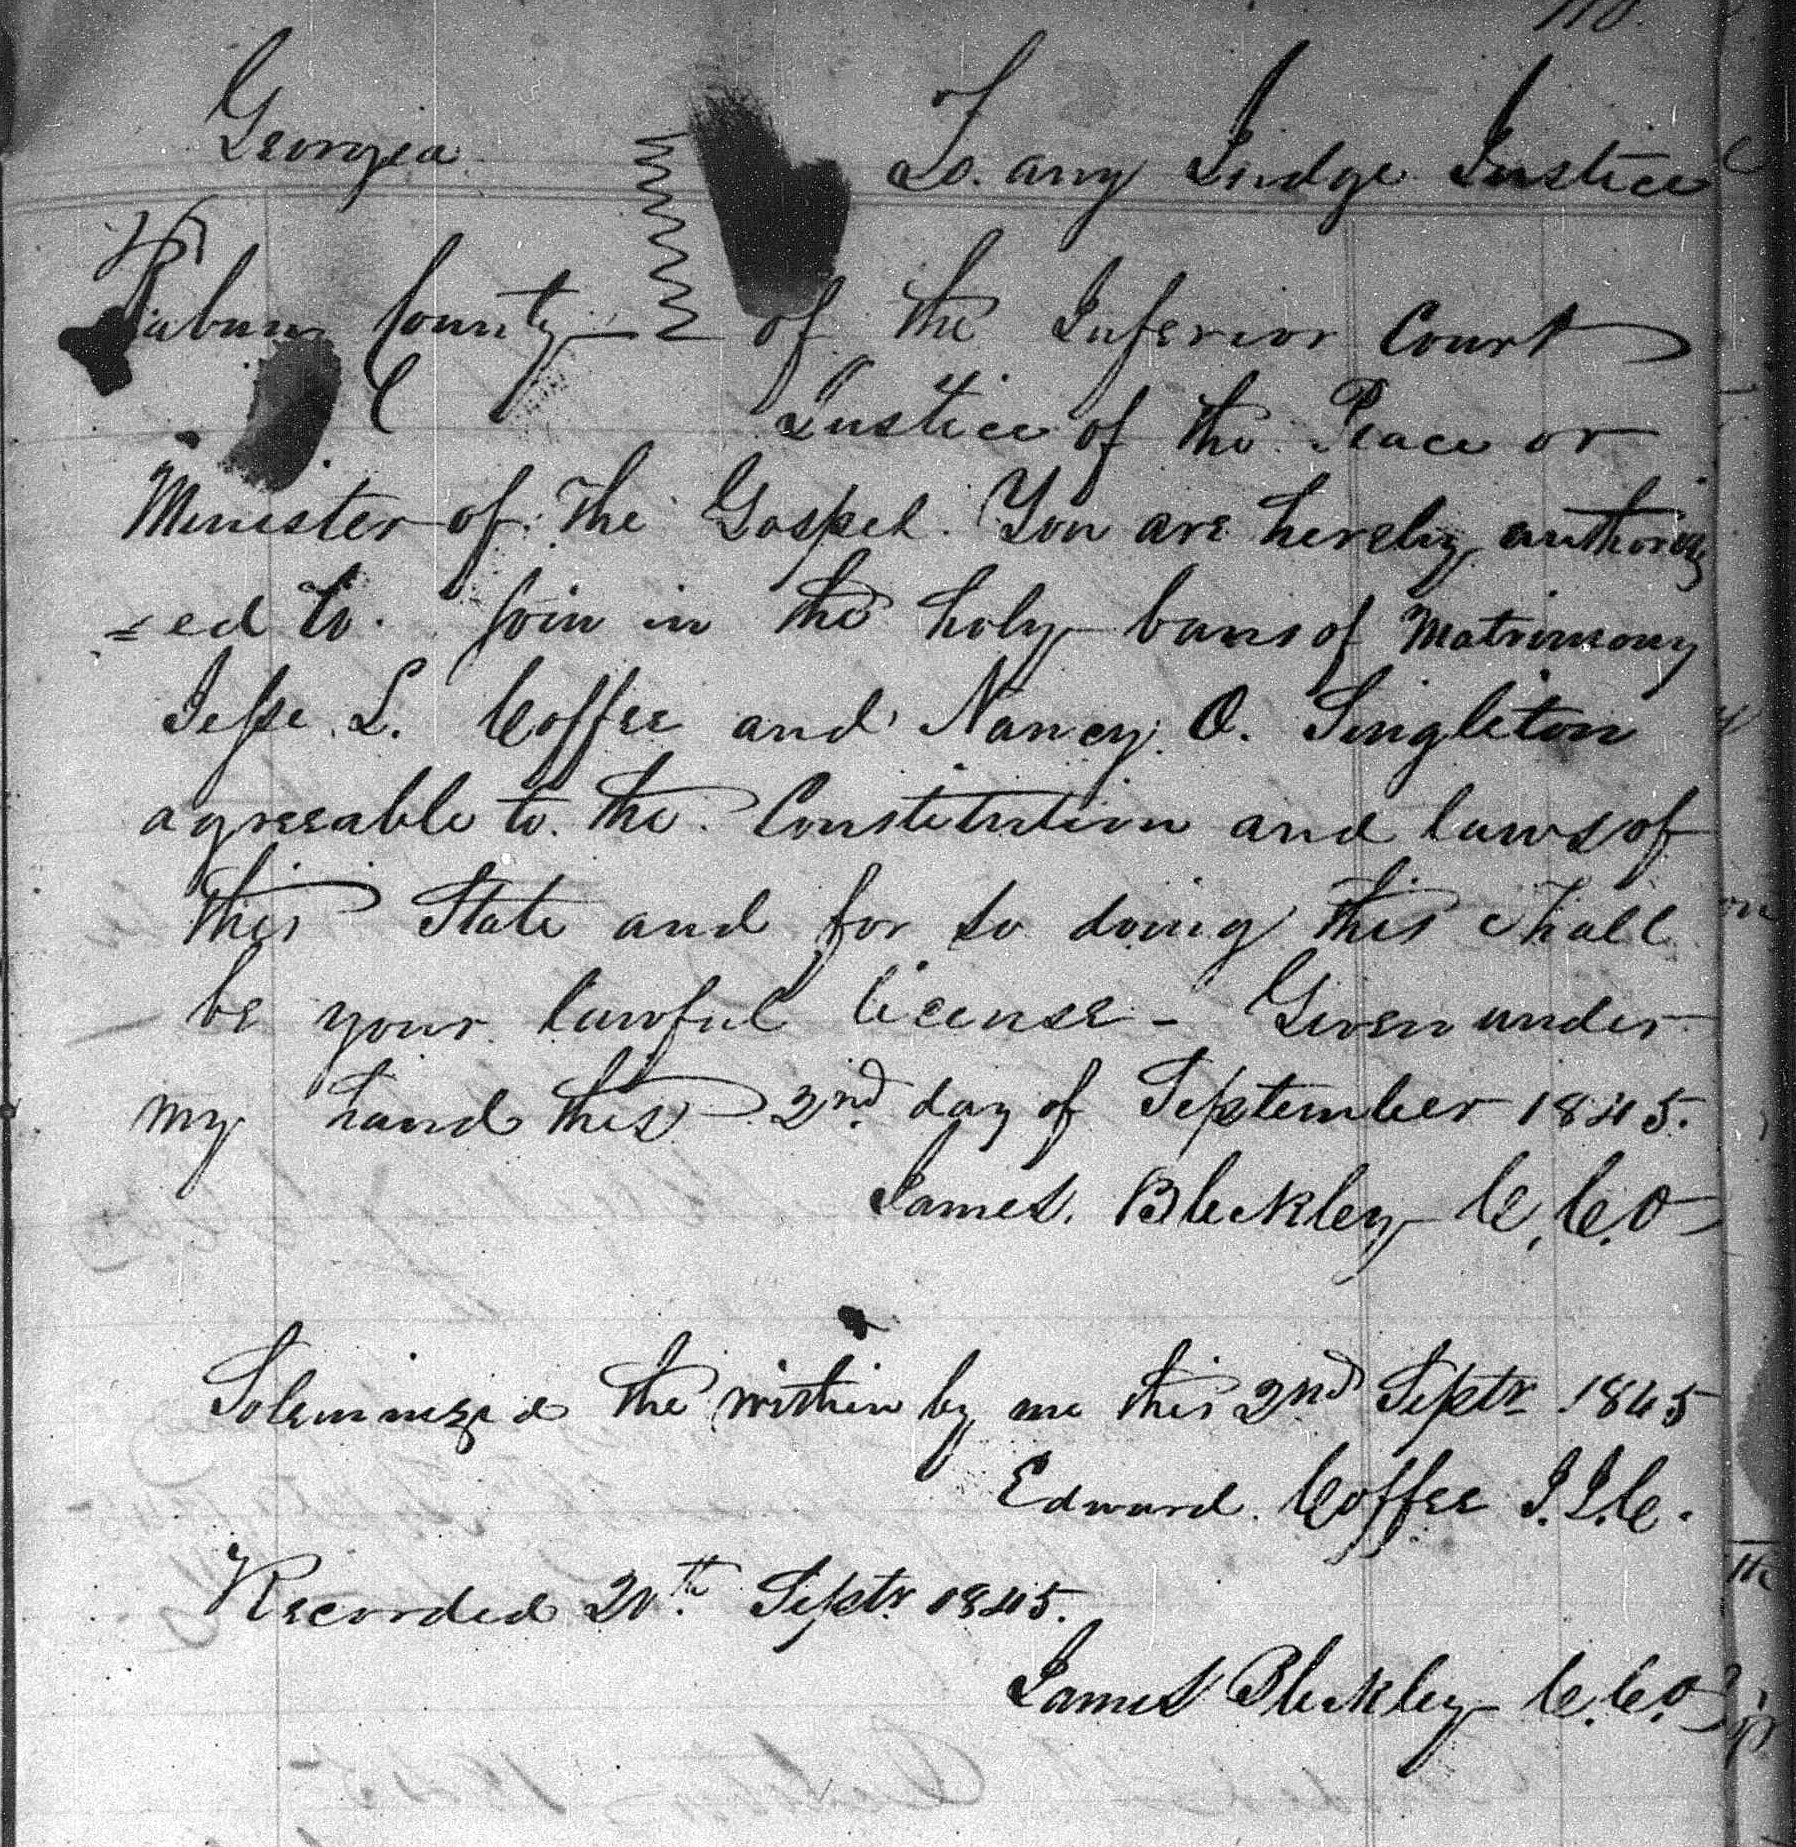 Georgia To any Judge Justice
Rabun County of the Inferior Court
Justice of the Peace or
Minister of the Gospel. You are hereby authoriz
=ed to. Join in the holy bans of Matrimony
Jesse L. Coffee and Nancy O. Singleton
agreeable to the Constitution and laws of
this State and for so doing this shall
be your lawful license - Given under
my hand this 2nd day of September 1845.
James Bleckley C. C. O
Solemnized the within by me this 2nd Septr 1845
Edward Coffee J.I.C.
Recorded 20th Septr 1845.
James Bleckley C. C. O